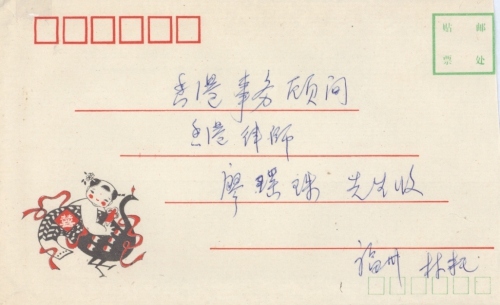 贴 邮
票 处
香港事务顾问
香港律师
廖瑶珠 先生收
福州 林